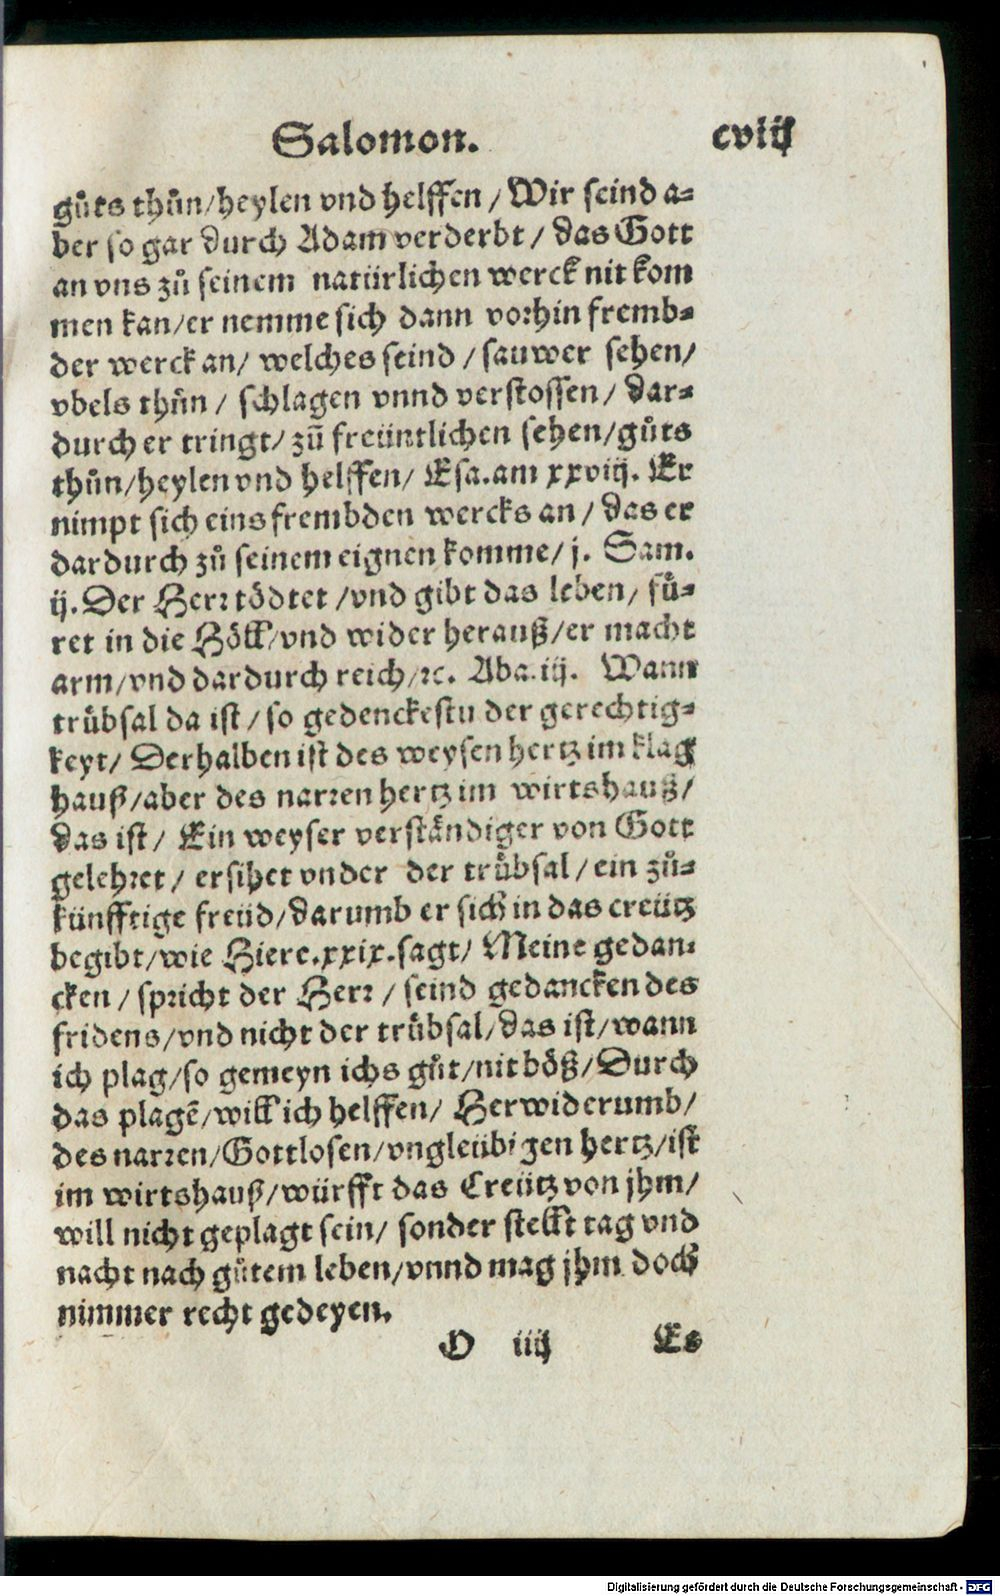 Salomon. cviij
gůts thůn/heylen vnd helffen / Wir seind a⸗
ber so gar durch Adam verderbt / das Gott
an vns zů seinem natürlichen werck nit kom
men kan/er nemme sich dann vorhin fremb⸗
der werck an/ welches seind / sauwer sehen/
vbels thůn / schlagen vnnd verstossen/ dar⸗
durch er tringt/ zů freüntlichen sehen/gůts
thůn/heylen vnd helffen/ Esa.am xxviij. Er
nimpt sich eins frembden wercks an / das er
dardurch zů seinem eignen komme/ j. Sam.
ij. Der Herr tödtet /vnd gibt das leben/ fů⸗
ret in die Höll/vnd wider herauß/er macht
arm/vnd dardurch reich/ꝛc. Aba.iij. Wann
trůbsal da ist / so gedenckestu der gerechtig⸗
keyt/ Derhalben ist des weysen hertz im klag
hauß/aber des narren hertz im wirtshauß/
das ist/ Ein weyser verständiger von Gott
gelehret / ersihet vnder der trůbsal / ein zů⸗
künfftige freüd/darumb er sich in das creütz
begibt/wie Hiere.xxix.sagt/ Meine gedan⸗
cken / spricht der Herr / seind gedancken des
fridens/vnd nicht der trůbsal/das ist/wann
ich plag/so gemeyn ichs gůt/nit böß/Durch
das plagē/will ich helffen/ Herwiderumb/
des narren/Gottlosen/vngleübigen hertz/ist
im wirtshauß/würfft das Creütz von jhm/
will nicht geplagt sein/ sonder stellt tag vnd
nacht nach gůtem leben/vnnd mag jhm doch
nimmer recht gedeyen.
O iiij Es
Digitalisierung gefördert durch die Deutsche Forschungsgemeinschaft - DFG